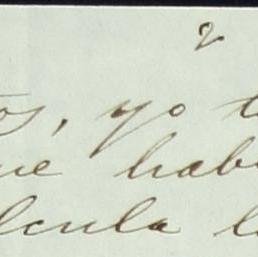 2
os, yo t
ue hab
lcula l